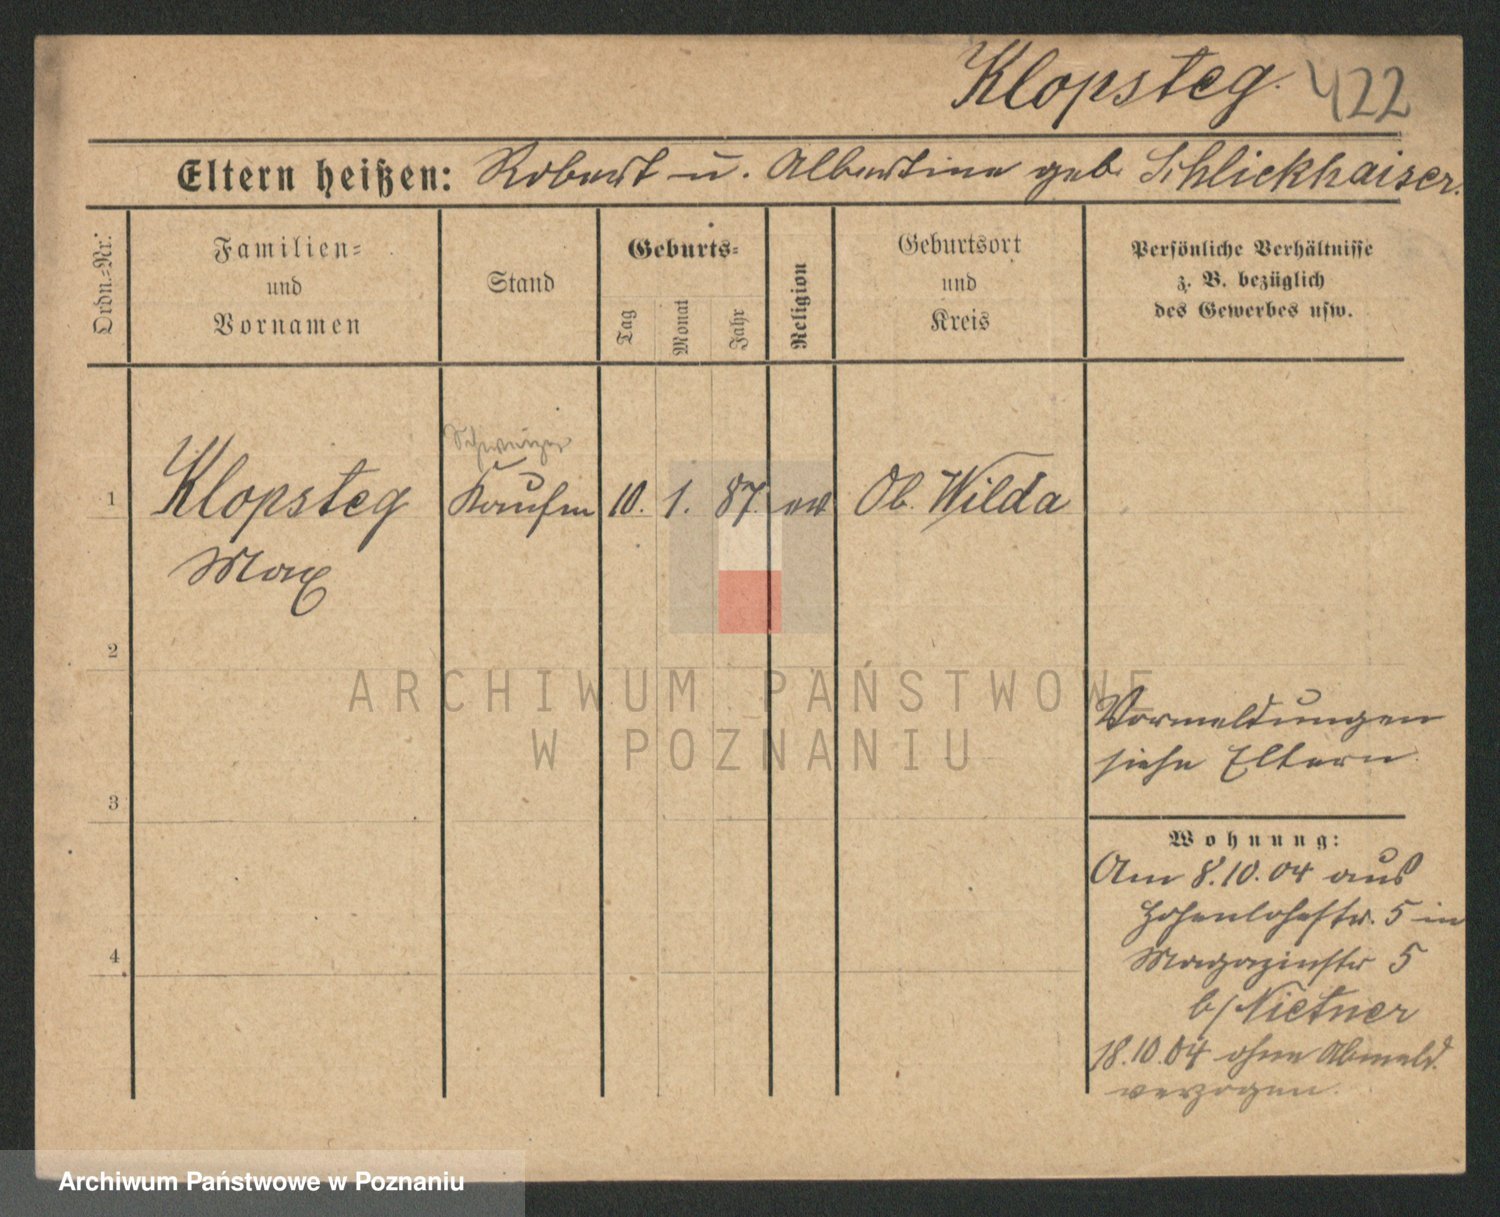 Klopsteg. 422
Eltern heißen: Robert u. Albertine geb. Schlickhaiser.
Ordn.-Nr.
Familien-
und
Vornamen
Stand
Geburts-
Tag
Monat
Jahr
Religion
Geburtsort
und
Kreis
Persönliche Verhältnisse
z. B. bezüglich
des Gewerbes usw.
Schweizer
1 Klopsteg Kaufm 10. 1. 87. ev Ob. Wilda
Max
2
ARCHIWUM PAŃSTWOWE
W POZNANIU
Vormeldungen
siehe Eltern
3
Wohnung:
Am 8.10.04 aus
Hohenlohestr. 5 in
Magazinstr 5
b/Nietner
4
18.10.04 ohne Abmeld.
verzogen.
Archiwum Państwowe w Poznaniu